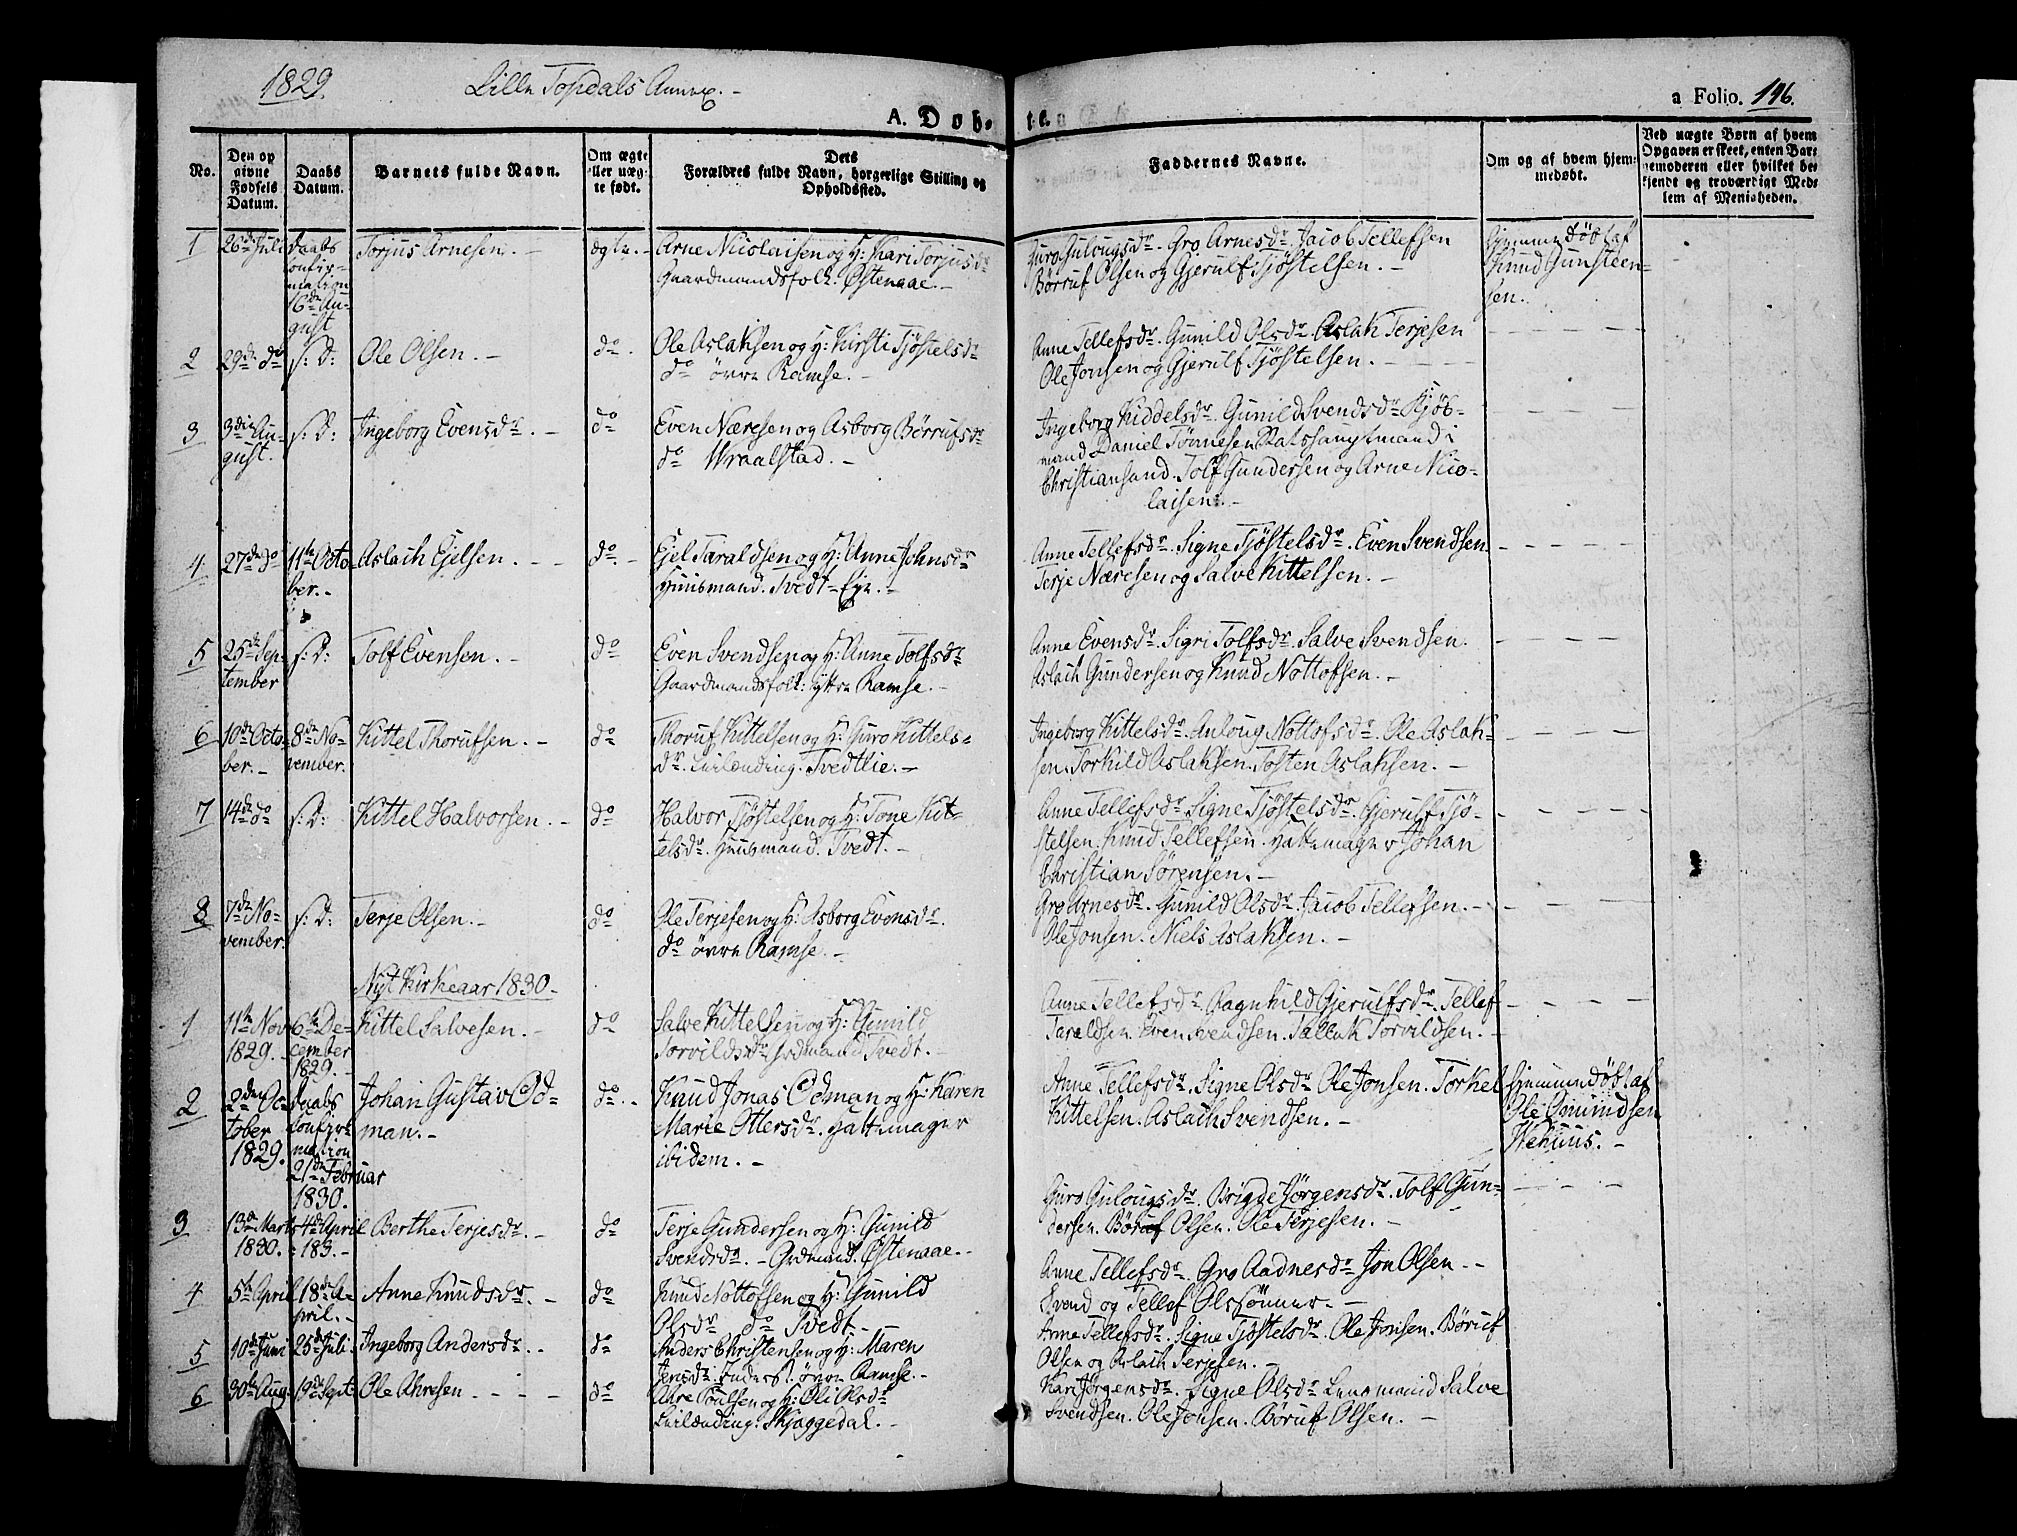 1829. Lille Topdals Annex.-
A. Døb-
te.
a Folio. 196.
No.
Den op
givne
Fødsels
Datum.
Daabs
Datum.
Barnets fulde Navn.
Om ægte
eller uæg-
te født.
Dets
Forældres fulde Navn, borgerlige Stilling og
Opholdssted.
Faddernes Navne.
Om og af hvem hjem-
medøbt.
Ved uægte Børn af hvem
Opgaven er skeet, enten Bar-
nemoderen eller hvilket be-
kjendt og troværdigt Med-
lem af Menigheden.
1 26de Juli Daabs Torjus Arnesen. - ægte. - Arne Nicolaisen og H: Kari Torjusdr
confir-
mation Gaardmandsfolk. Østenaae. -
16de Au-
gust
Guro Gulougsdr. Gro Arnesdr. Jacob Tellefsen
Børruf Olsen og Gjerulf Tjøstelsen. -
Hjemmedøbt af
Knud Gunsteen-
sen.
2 29de do s: D: Ole Olsen. - do. Ole Aslaksen og H: Kirsti Tjøstelsdr
do øvre Ramse. -
Anne Tellefsdr. Gunild Olsdr. Aslak Terjesen
Ole Jonsen og Gjerulf Tjøstelsen. -
3 3die Au- s: D: Ingeborg Evensdr. - do Even Næresen og Asborg Børrufsdr
gust. do Wraalstad. -
Ingeborg Kiddelsdr. Gunild Svendsdr. Kjøb-
mand Daniel Tønnesen Ratshauptmand i
Christiansand. Tolf Gundersen og Arne Nico-
laisen. -
4 27de do 11te Octo- Aslach Ejelsen. - - do. - Ejel Taraldsen og H: Anne Johnsdr
ber. - Huusmand. Tvedt-Eje. -
Anne Tellefsdr. Signe Tjøstelsdr. Even Svendsen.
Terje Næresen og Salve Kittelsen. -
5 25de Sep- s: D: Tolf Evensen. - do Even Svendsen og H: Anne Tolfsdr
tember Gaardmandsfolk: yttre Ramse. -
Anne Evensdr. Sigri Tolfsdr. Salve Svendsen.
Aslach Gundersen og Knud Nottofsen. -
6 10de Octo- 8de No- Kittel Thorufsen. - do Thoruf Kittelsen og H: Guro Kittels-
ber. - vember. dr. Leilænding. Tvedtlie. -
Ingeborg Kittelsdr. Anloug Nottofsdr. Ole Aslak-
sen. Torkild Aslaksen. Tosten Aslaksen. -
7 14de do s: D: Kittel Halvorsen. - do Halvor Tjøstelsen og H: Tone Kit-
telsdr. Huusmand. Tvedt. -
Anne Tellefsdr. Signe Tjøstelsdr. Gjerulf Tjø-
stelsen. Knud Tellefsen. Hattemager Johan
Christian Sørensen. -
8 7de No- s: D: Terje Olsen. - do Ole Terjesen og H: Asborg Evensdr.
vember. do øvre Ramse. -
Gro Arnesdr. Gunild Olsdr. Jacob Tellefsen. -
Ole Jonsen. Niels Aslaksen. -
Nyt Kirkeaar 1830 -
1 11te Nov 6te De- Kittel Salvesen. - do Salve Kittelsen og H: Gunild
1829. - cember Torvildsdr. Grdmand Tvedt. -
1829. -
Anne Tellefsdr. Ragnhild Gjerulfsdr. Tellef
Taraldsen. Even Svendsen. Tallak Torvildsen. -
2 2den Oc- Daabs Johan Gustav Öd- do. - Knud Jonas Ödman og H: Karen
tober confir- man. - Marie Ottersdr. Hattemager
1829. mation ibidem. -
21de Februar
1830.
Anne Tellefsdr. Signe Olsdr. Ole Jonsen. Torkel
Kittelsen. Aslach Svendsen. -
Hjemmedøbt af
Ole Omundsen
Wehuus. -
3 13de Marts 4de April Berthe Terjesdr. - do Terje Gundersen og H: Gunild
1830. - 183. - Svendsdr. - Grdmand. Østenaae. -
Guro Gulougsdr. Brigde Jørgensdr. Tolf Gun-
dersen. Børuf Olsen. Ole Terjesen. -
4 5te April 18de A- Anne Knudsdr. - do Knud Nottofsen og H: Gunild
pril. - Olsdr do Tvedt -
Anne Tellefsdr. Gro Aadnesdr Jon Olsen. -
Svend og Tellef Olssønner. -
5 10de Juni 25de Juli. Ingeborg Andersdr. - do Anders Christensen og H: Maren
Jensdr. Inderst. øvre Ramse. -
Anne Tellefsdr. Signe Tjøstelsdr. Ole Jonsen. Børuf
Olsen og Aslach Terjesen. -
6 30te Aug. 19de Sept. Ole Ahresen - - - - do Ahre Poulsen og H: Oli Olsdr
Leilænding: Skjaggedal. -
Kari Jørgensdr. Signe Olsdr. Lensmand Salve
Svendsen. Ole Jonsen. Børuf Olsen. -